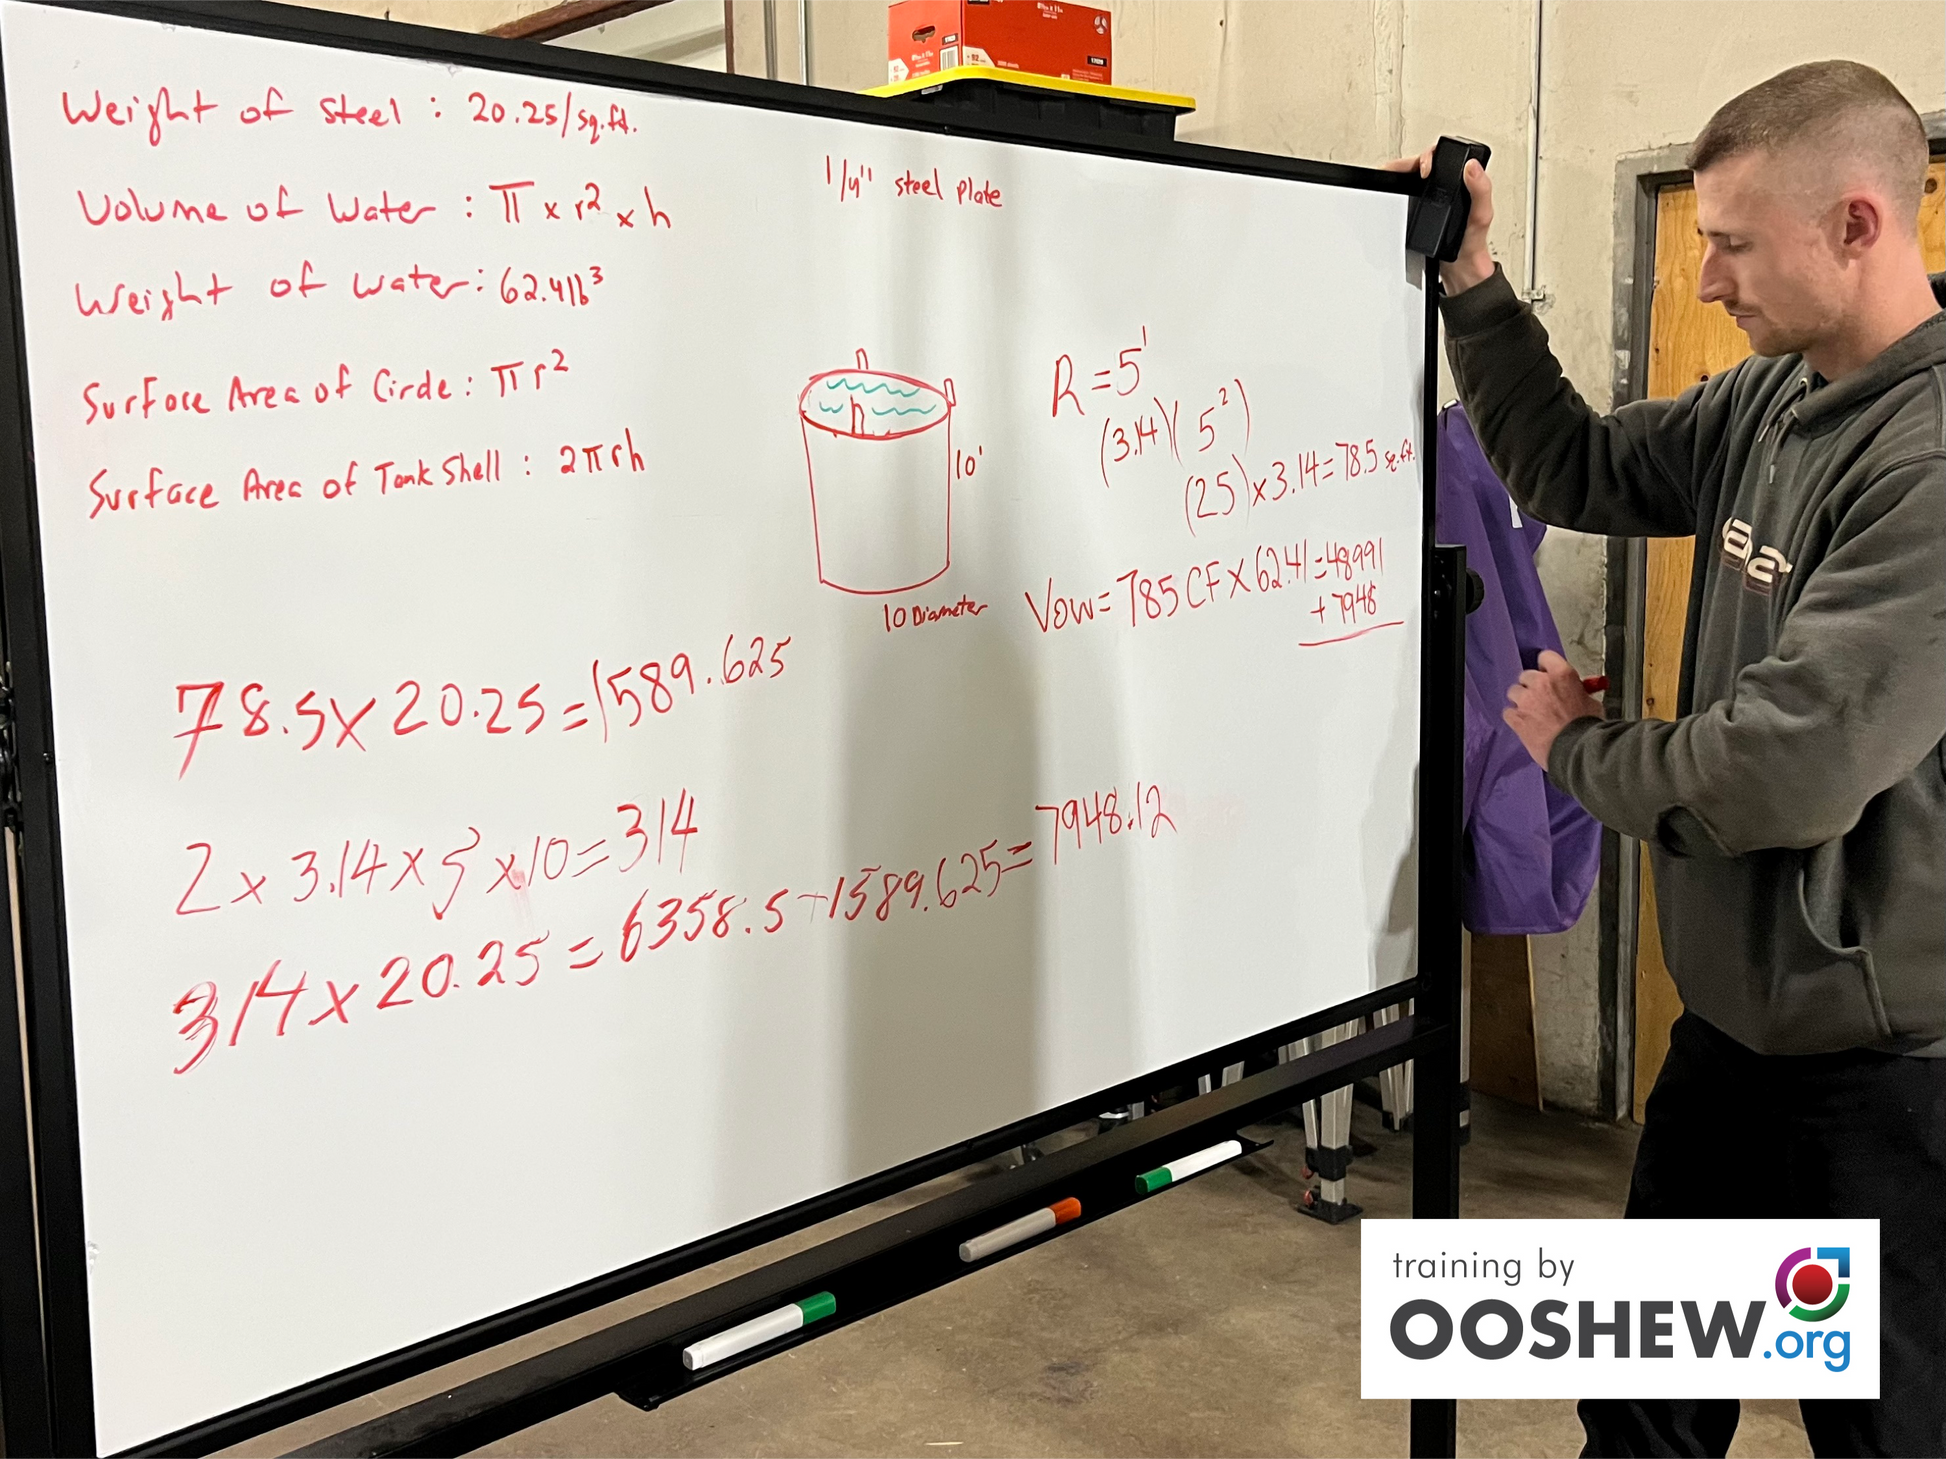 Weight of Steel : 20.25/sq.ft.
Volume of Water : π x r² x h
Weight of Water : 62.41lb³
Surface Area of Circle : π r²
Surface Area of Tank Shell : 2πrh
1/4" steel plate
10'
10 Diameter
R = 5'
(3.14)(5²)
(25) x 3.14 = 78.5 sq.ft.
VOW = 785 CF X 62.41 = 48991
+ 7948
78.5 X 20.25 = 1589.625
2 x 3.14 x 5 x 10 = 314
314 x 20.25 = 6358.5 + 1589.625 = 7948.12
training by
OOSHEW
.org